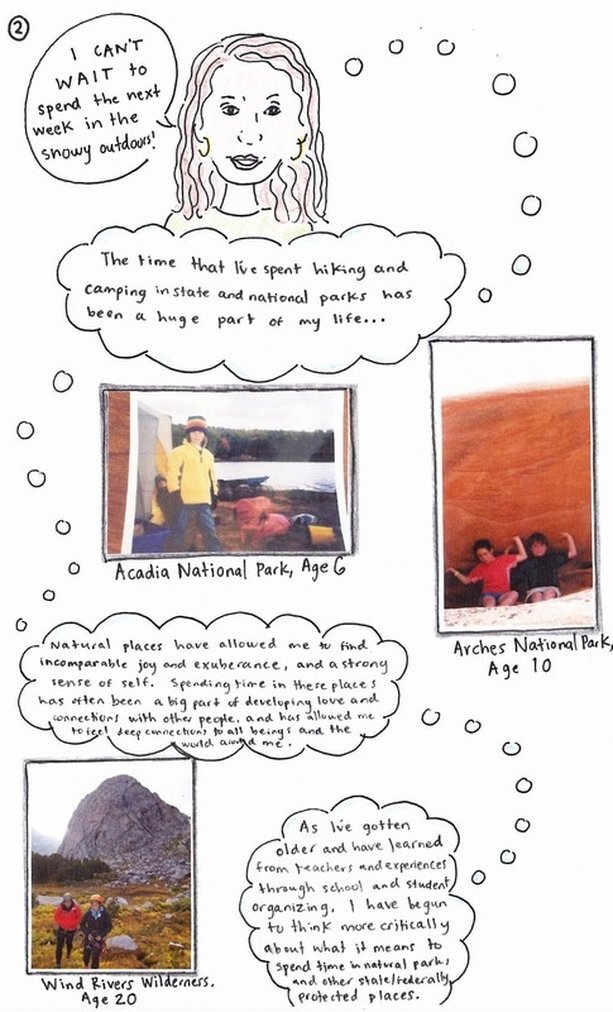 2
I CAN'T
WAIT to
spend the next
week in the
snowy outdoors!
The time that I've spent hiking and
camping in state and national parks has
been a huge part of my life...
Acadia National Park, Age 6
Arches National Park,
Age 10
Natural places have allowed me to find
incomparable joy and exuberance, and a strong
sense of self. Spending time in these places
has often been a big part of developing love and
connections with other people, and has allowed me
to feel deep connections to all beings and the
world around me.
As I've gotten
older and have learned
from teachers and experiences
through school and student
organizing, I have begun
to think more critically
about what it means to
spend time in natural parks,
and other state/federally
protected places.
Wind Rivers Wilderness,
Age 20